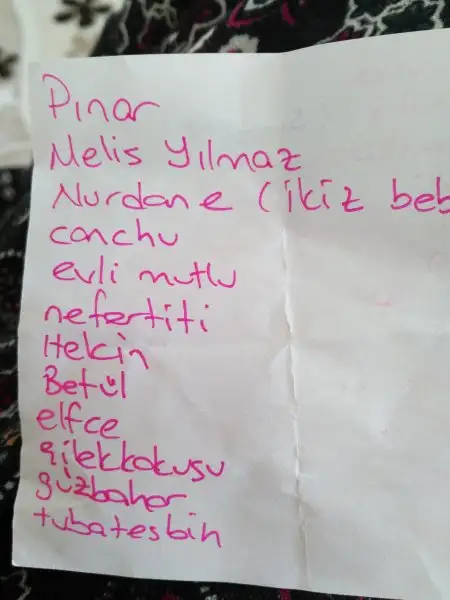 Pınar
Melis Yılmaz
Nurdane (ikiz beb
canchu
evli mutlu
nefertiti
Helcin
Betül
elfce
çilekkokusu
güzbahar
tubatesbih